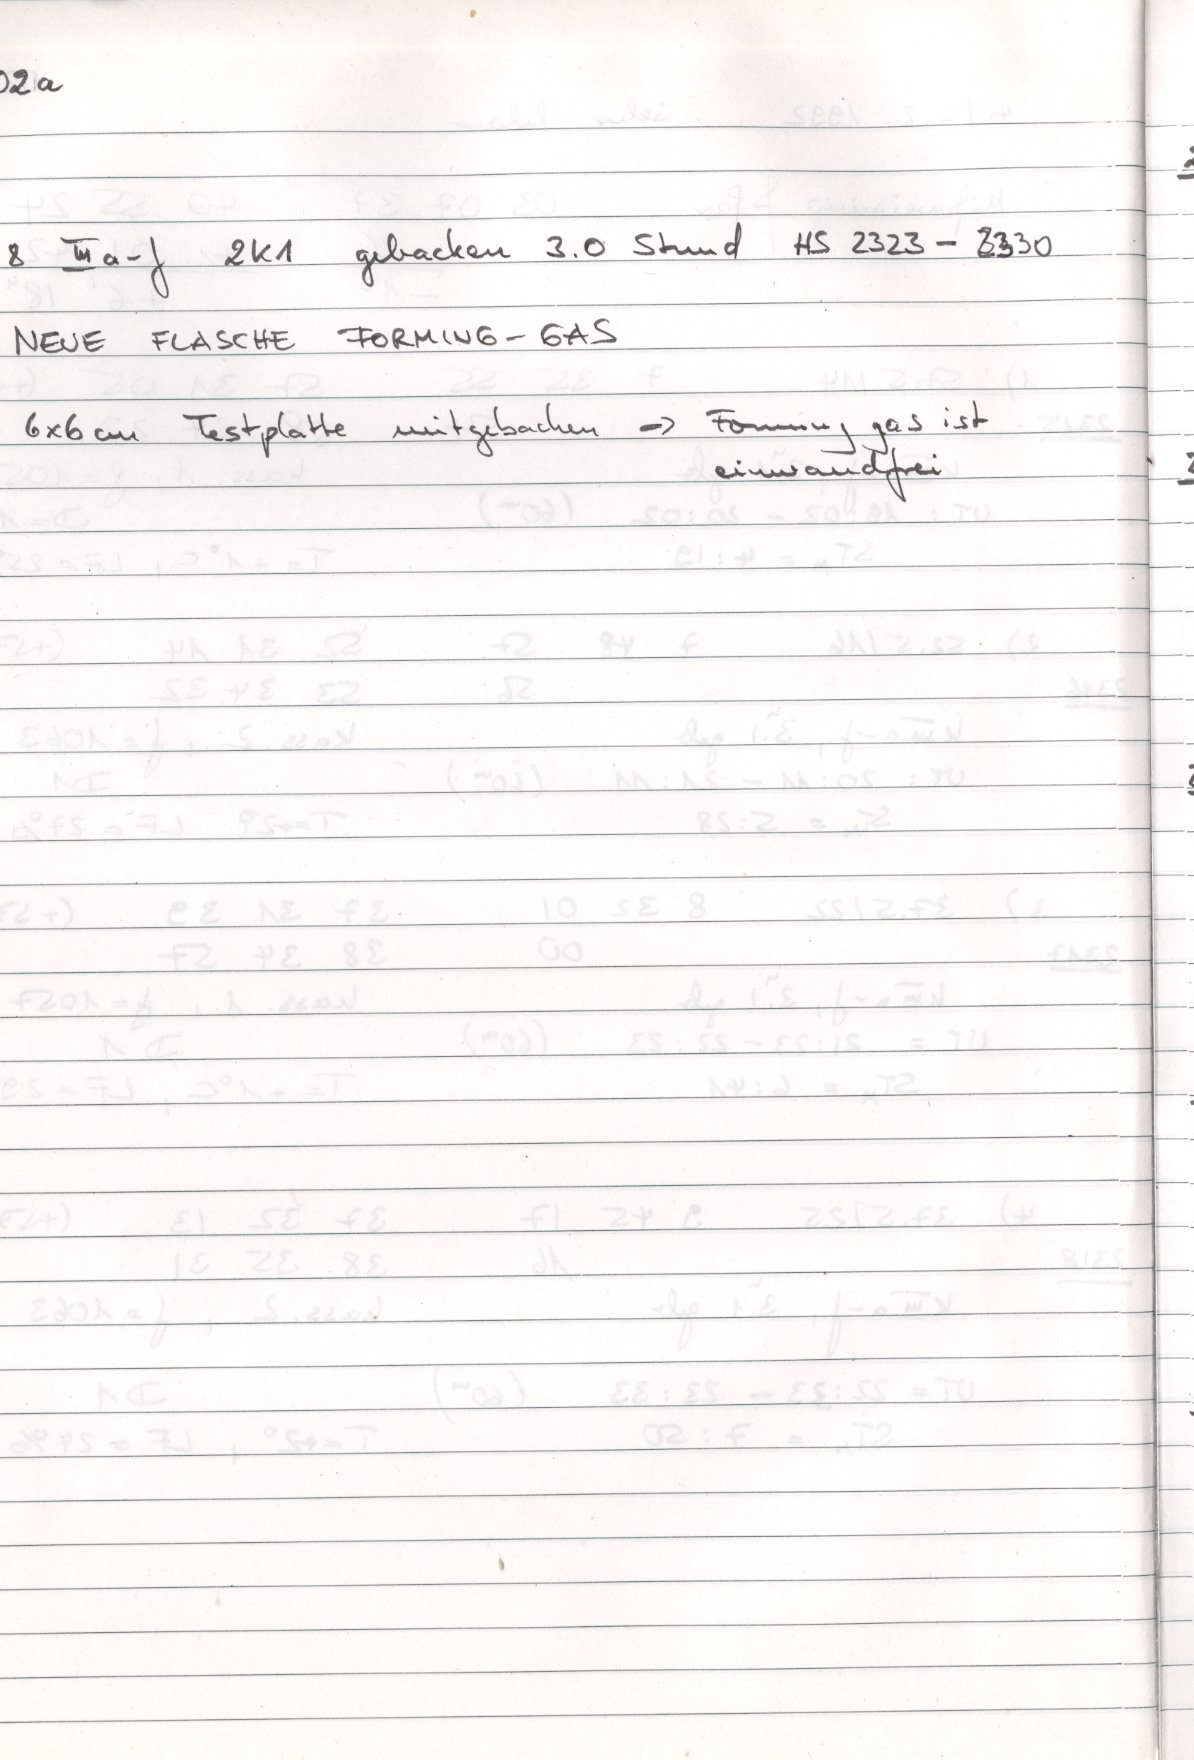 02a
8 IIIa-J 2K1 gebacken 3.0 Stund HS 2323 - 2330
NEUE FLASCHE FORMING-GAS
6x6 cm Testplatte mitgebacken → Forming gas ist
einwandfrei